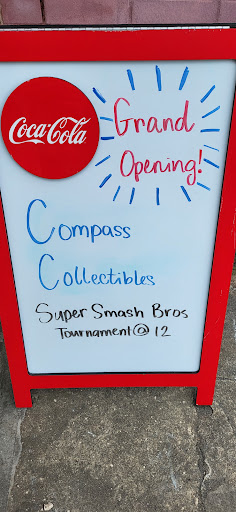 Coca-Cola
Grand
Opening!
Compass
Collectibles
Super Smash Bros
Tournament @ 12